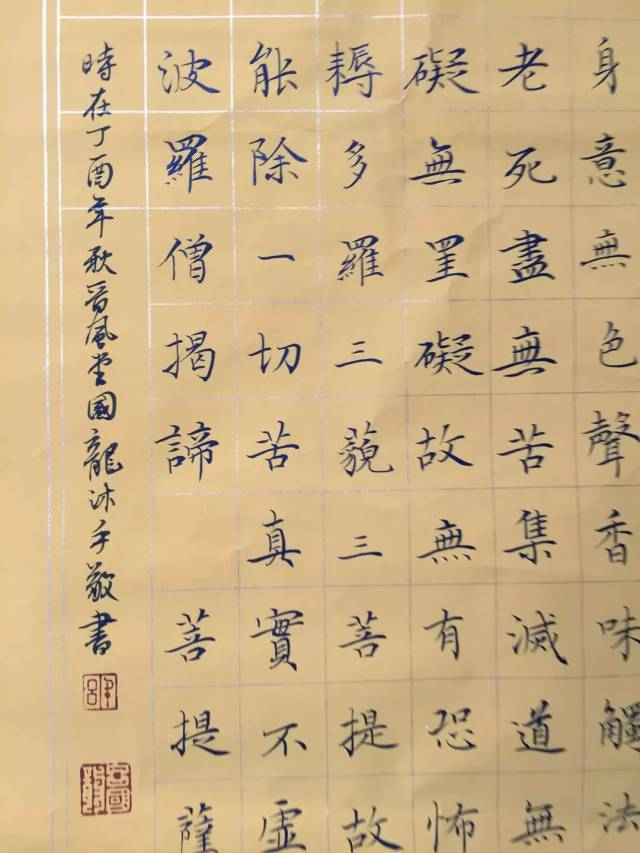 身意無色聲香味觸法
老死盡無苦集滅道無
礙無罣礙故無有恐怖
耨多羅三藐三菩提故
能除一切苦真實不虛
波羅僧揭諦 菩提薩
時在丁酉年秋習風堂國龍沐手敬書